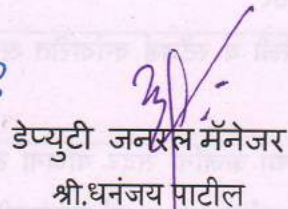 डेप्युटी जनरल मॅनेजर
श्री.धनंजय पाटील